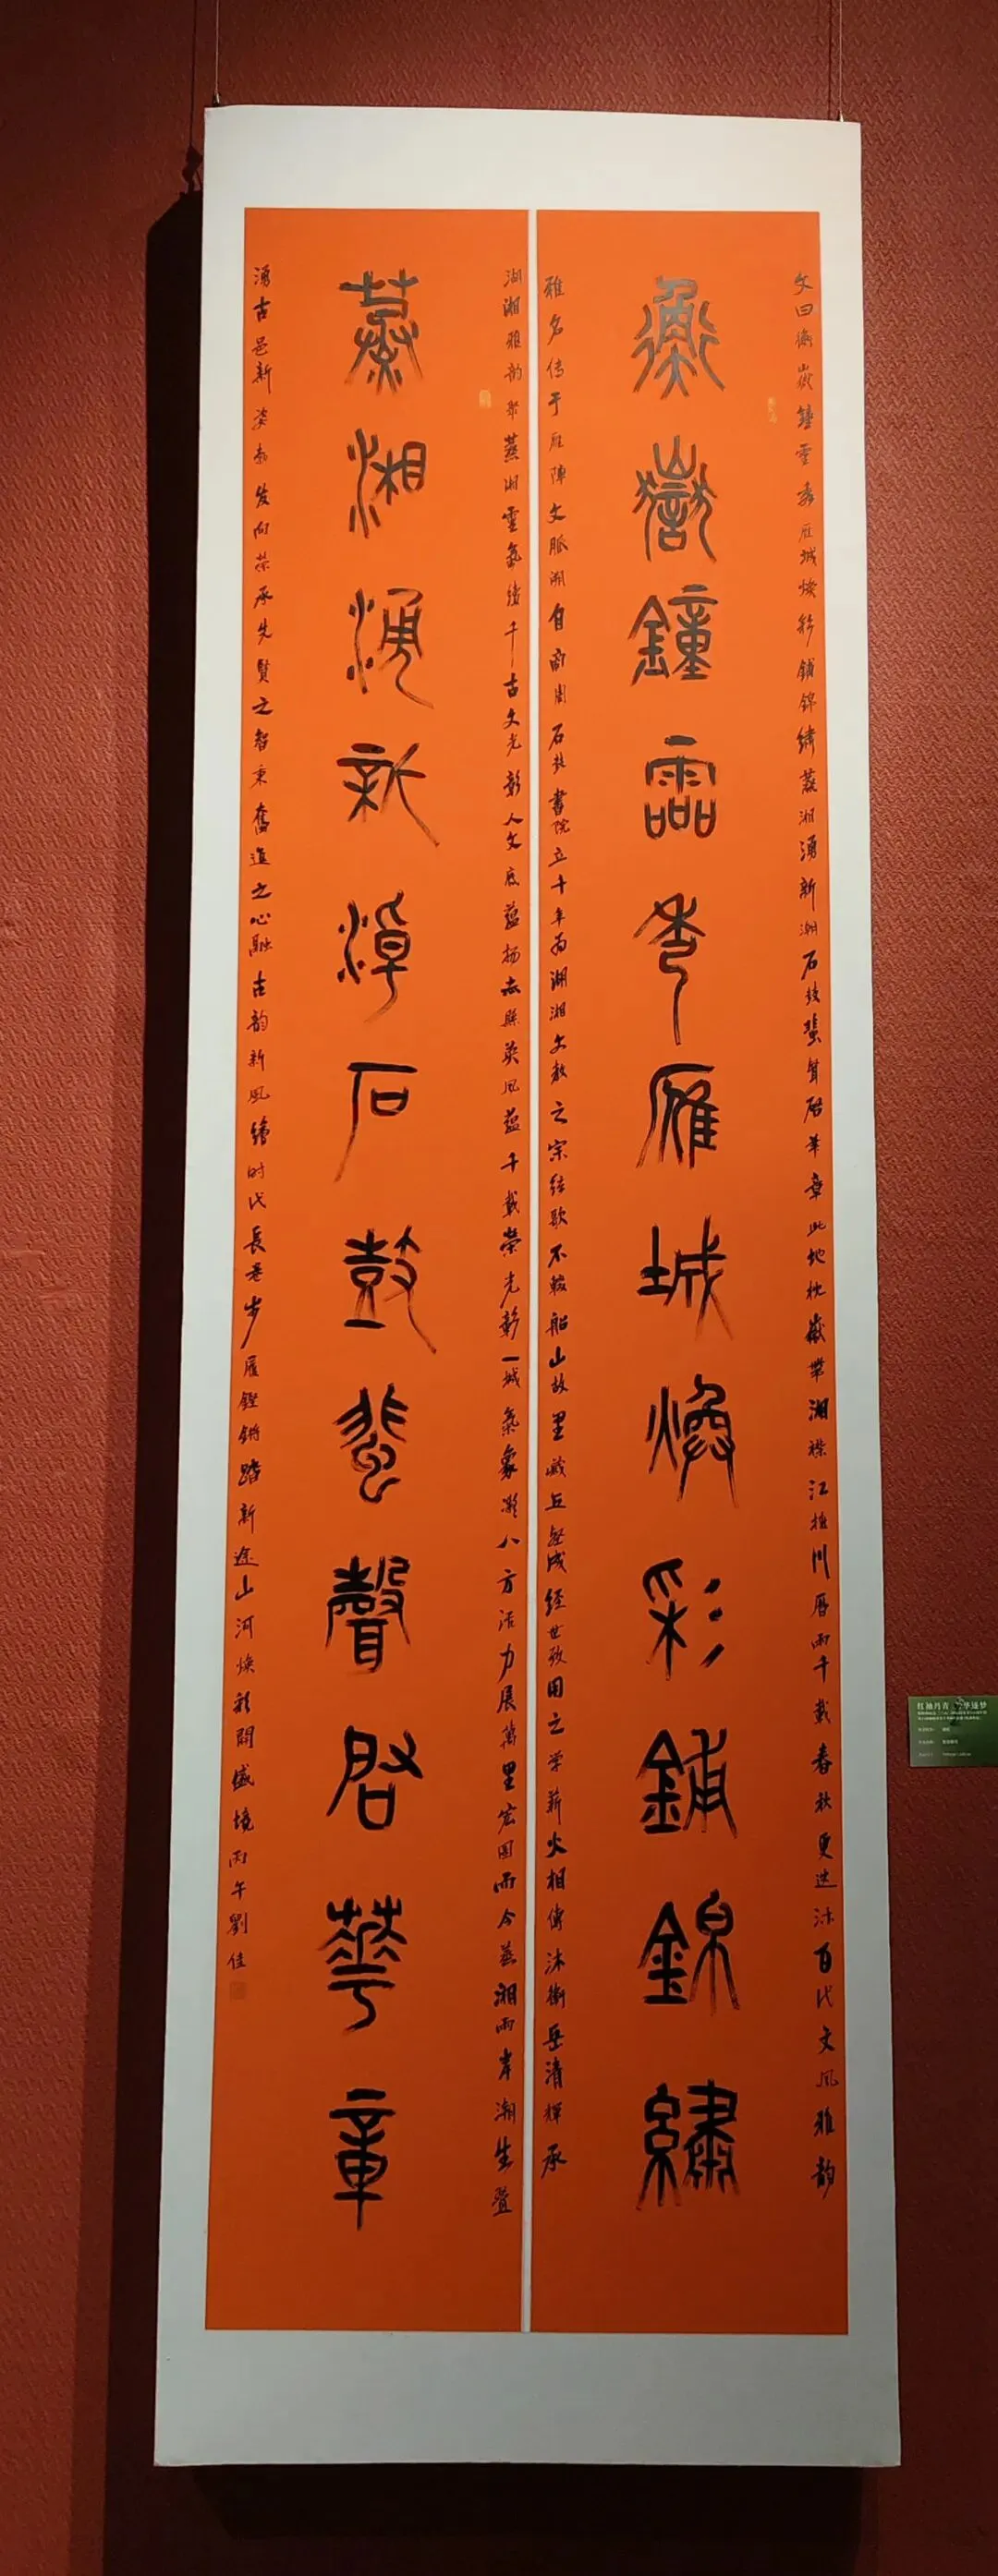 文曰衡嶽鐘靈秀雁城煥彩鋪錦繡蒸湘湧新潮石鼓蜚聲啓華章此地枕嶽帶湘襟江抱川曆兩千載春秋更迭沐百代文风雅韵
衡嶽鐘靈秀雁城煥彩鋪錦繡
雅名传于雁陣文脈溯自商周石鼓書院立千年為湖湘文教之宗弦歌不輟船山故里藏丘壑成經世致用之学薪火相傳沐衡岳清輝承
湖湘雅韵聚蒸湘靈氣續千古文光彰人文底蘊揚英风蘊千載榮光彰一城氣象凝八方活力展萬里宏圖而今蒸湘兩岸潮生疊
蒸湘湧新潮石鼓蜚聲啓華章
湧古邑新姿勃发向荣承先賢之智秉奮進之心融古韵新风續时代長卷步履鏗鏘踏新途山河煥彩開盛境丙午劉佳
红袖丹青 华逐梦